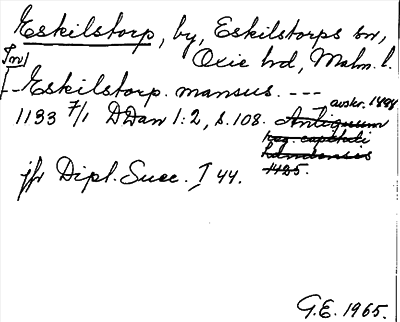 Eskilstorp, by, Eskilstorps sn,
Oxie hd, Malm. l.
[In]
[-- Eskilstorp. mansus. ---
avskr. 1494
1133 7/1 DDan 1:2, s. 108. Antiquum
reg. capituli
lundensis
1425.
jfr Dipl. Suec. I 44.
G.E. 1965.